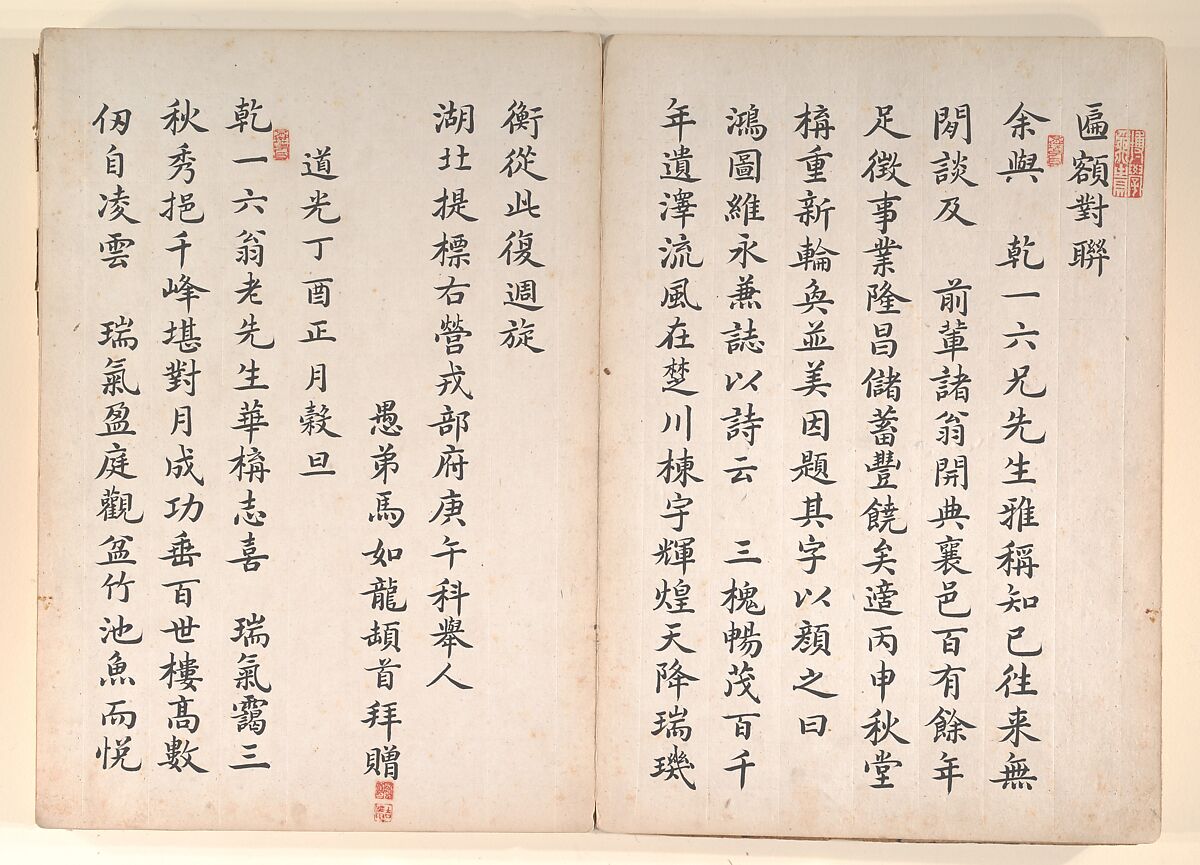 匾額對聯
余與 乾一六兄先生雅稱知已徃来無
閒談及 前輩諸翁開典襄邑百有餘年
足徵事業隆昌儲蓄豐饒矣適丙申秋堂
構重新輪奐並美因題其字以顏之曰
鴻圖維永兼誌以詩云 三槐暢茂百千
年遺澤流風在楚川棟宇輝煌天降瑞璣
衡從此復週旋
湖北提標右營戎部府庚午科舉人
愚弟馬如龍頓首拜贈
道光丁酉正月穀旦
乾一六翁老先生華構志喜 瑞氣靄三
秋秀挹千峰堪對月成功垂百世樓高數
仞自凌雲 瑞氣盈庭觀盆竹池魚而悅